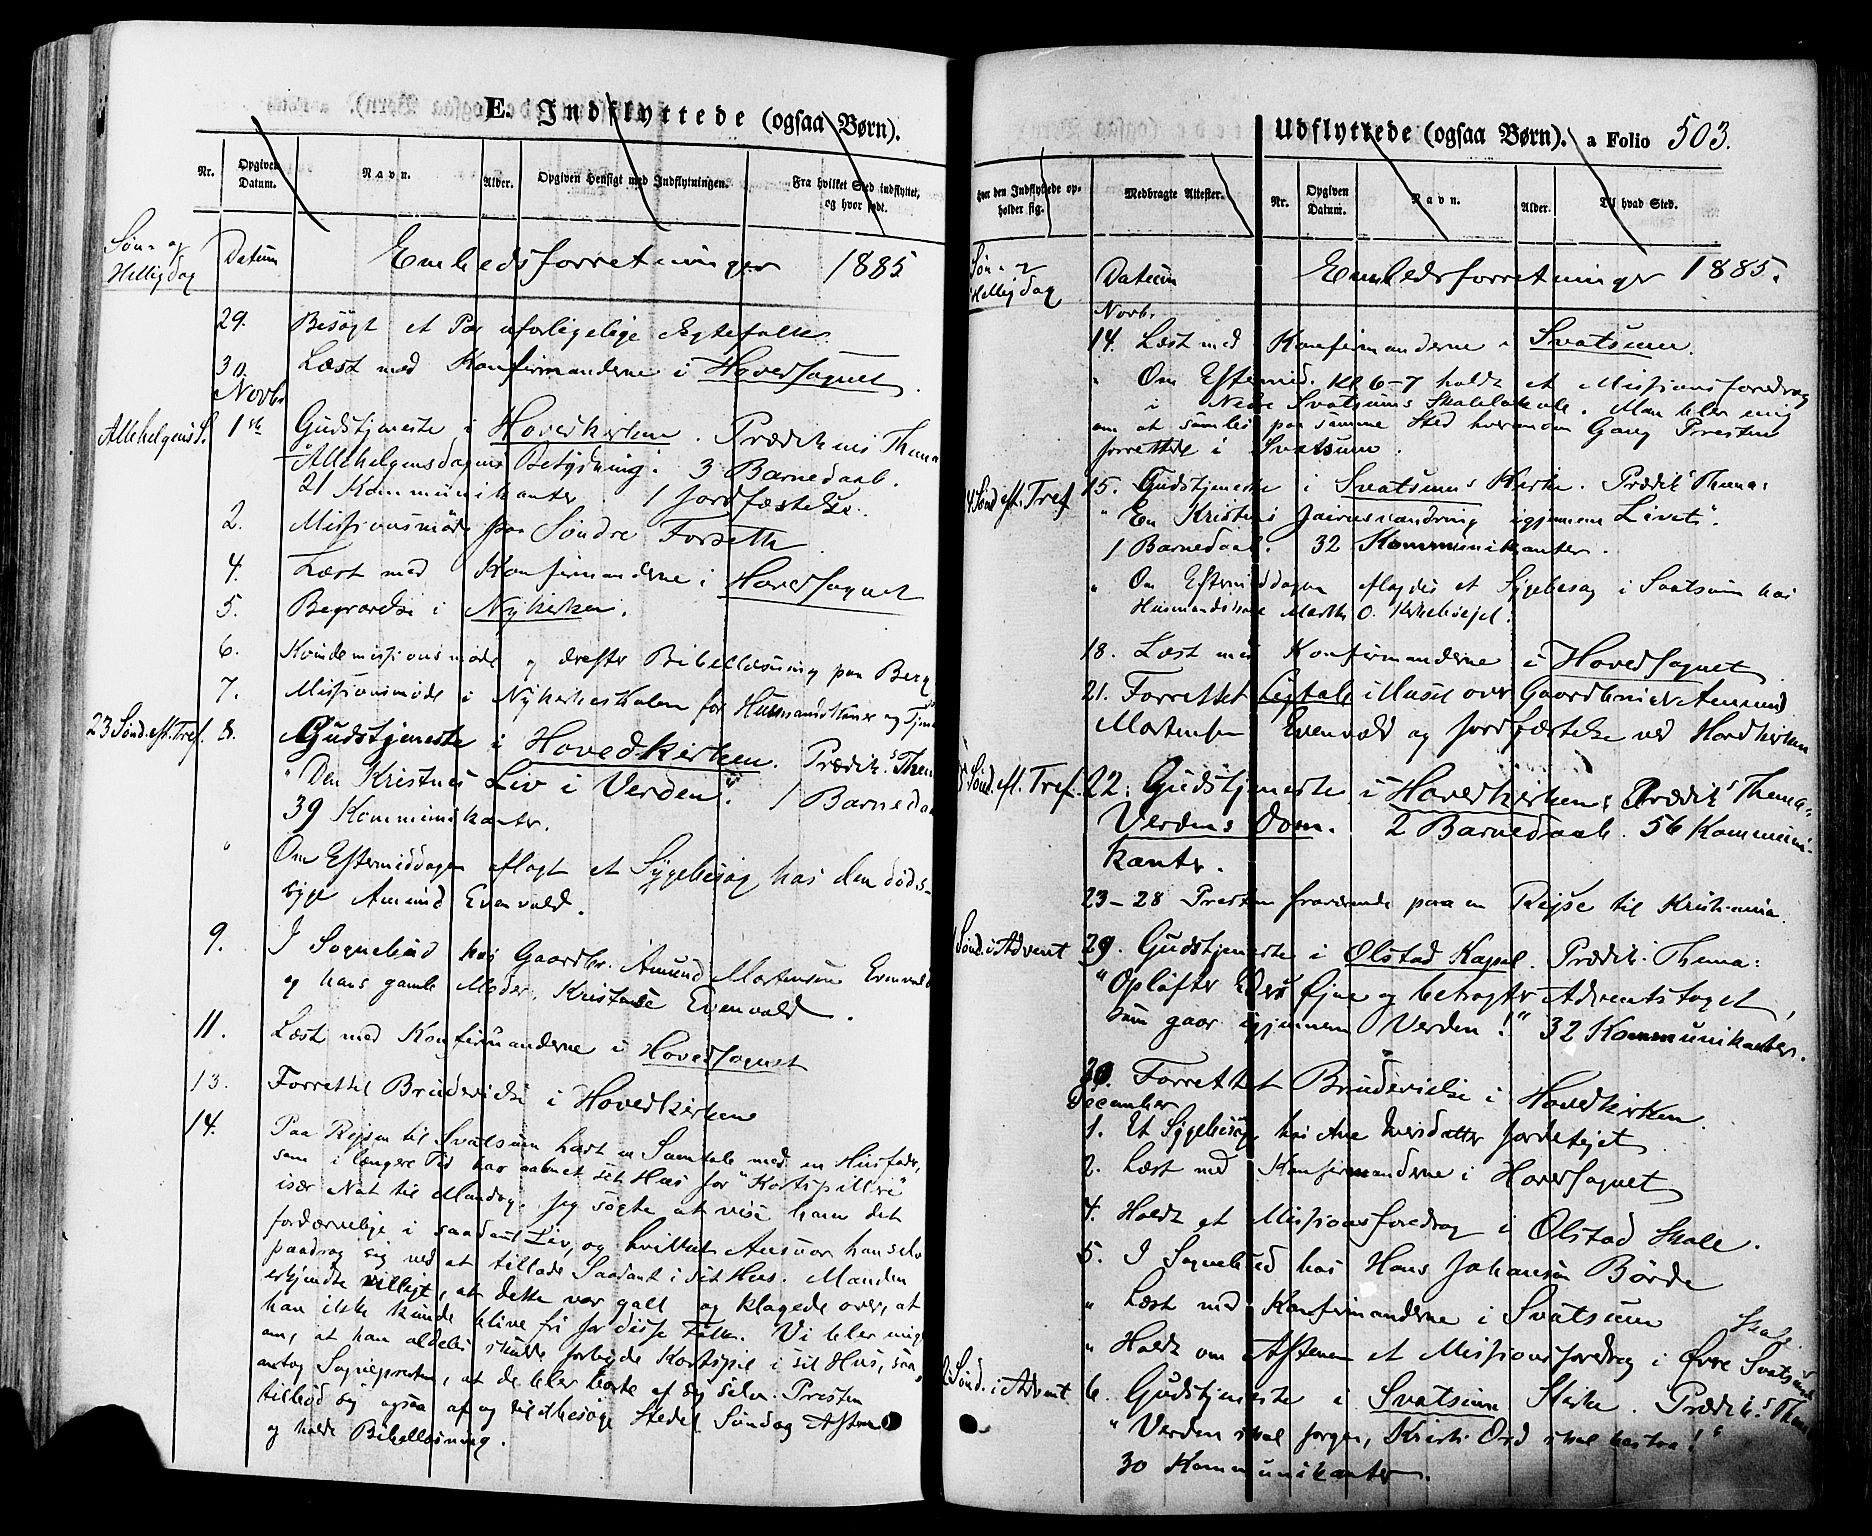 E. Indflyttede (ogsaa Børn).
Nr. Opgiven Datum. Navn. Alder. Opgiven Hensigt med Indflytningen. Fra hvilket Sted indflyttet, og hvor født.
Søn- og Helligdag Datum Embedsforretninger 1885
29. Besøgt et Par uforligelige Egtefolk.
30. Læst med Konfirmanderne i Hovedsognet.
Novbr
Allehelgensd. 1ste Gudstjeneste i Hovedkirken. Prædikens Thema
"Allehelgensdagens Betydning". 3 Barnedaab.
21 Kommunikanter. 1 Jordfæstelse.
2. Missionsmøde paa Søndre Forseth.
4. Læst med Konfirmanderne i Hovedsognet
5. Begravelse i Nykirken.
6. Kvindemissionsmøde og derefter Bibellæsning paa Berg
7. Missionsmøde i Nykirkeskolen for Husmandskoner og
23 Sønd. eft. Tref. 8. Gudstjeneste i Hovedkirken. Prædik.s Them
"Den Kristnes Liv i Verden". 1 Barnedaab
39 Kommunikanter.
" Om Eftermiddagen aflagt et Sygebesøg hos den døds-
syge Amund Evenvold.
9. I Sognebud hos Gaardbr. Amund Mortensen Evenvold
og hans gamle Moder, Kristense Evenvold.
11. Læst med Konfirmanderne i Hovedsognet
13. Forrettet Brudevielse i Hovedkirken
14. Paa Rejsen til Svatsum havt en Samtale med en Husfader,
som i længere Tid har aabnet sit Hus for "Kortspillere"
især Nat til Mandag. Jeg søgte at vise ham det
fordærvelige i saadant Liv, og hvilket Ansvar han selv
paadrog sig ved at tillade Saadant i sit Hus. Manden
erkjendte villigt, at dette var galt og klagede over, at
han ikke kunde blive fri for disse Folk. Vi blev enige
om, at han aldeles skulde forbyde Kortspil i sit Hus, saa
antog Sognepresten, at de blev borte af sig selv. Presten
tilbød sig ogsaa af og til at besøge Stedet Søndag Aften
og holde Bibellæsning.
Udflyttede (ogsaa Børn). a Folio 503.
Hvor den Indflyttede opholder sig. Medbragte Attester. Nr. Opgiven Datum. Navn. Alder. Til hvad Sted.
Søn- og Helligdag Datum Embedsforretninger 1885.
Novbr.
14. Læst med Konfirmanderne i Svatsum.
" Om Eftermid. Kl 6-7 holdt et Missionsforedrag
i Nedre Svatsums Skolelokale. Man blev enig
om at samles paa samme Sted hver anden Gang Presten
forrettede i Svatsum.
Sønd. eft. Tref. 15. Gudstjeneste i Svatsums Kirke. Prædik.s Thema:
"En Kristens vandring igjennem Livet".
1 Barnedaab. 32 Kommunikanter.
" Om Eftermiddagen aflagdes et Sygebesøg i Svatsum hos
Husmandskone Marthe O. Kirkebøejet.
18. Læst med Konfirmanderne i Hovedsognet
21. Forrettet Ligtale i Huset over Gaardbruger Amund
Mortensen Evenvold og Jordfæstelse ved Hovedkirken
Sønd. eft. Tref. 22. Gudstjeneste i Hovedkirken. Prædik.s Thema:
Verdens Dom. 2 Barnedaab. 56 Kommuni-
kanter.
23-28 Presten fraværende paa en Rejse til Kristiania.
Sønd. i Advent 29. Gudstjeneste i Olstad Kapel. Prædik. Thema:
"Opløfter Eders Øjne og betragter Adventstoget,
som gaar igjennem Verden!" 32 Kommunikanter.
30. Forrettet Brudevielse i Hovedkirken.
December
1. Et Sygebesøg hos Ane Iversdatter
2. Læst med Konfirmanderne i Hovedsognet
4. Holdt et Missionsforedrag i Olstad Skole.
5. I Sognebud hos Hans Johansen Børde
" Læst med Konfirmanderne i Svatsum
" Holdt om Aftenen et Missionsforedrag i Øvre Svatsums Skole
2 Sønd. i Advent 6. Gudstjeneste i Svatsum Kirke. Prædik.s Thema
"Verden skal forgaa, Kristi Ord skal bestaa!"
30 Kommunikanter.